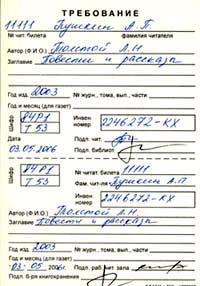 ТРЕБОВАНИЕ
11111 Пушкин А. П.
№ чит. билета фамилия читателя
Автор (Ф.И.О.) Толстой Л.Н
Заглавие Повести и рассказы
Год изд. 2003 № журн., тома, вып., части
Год и месяц (для газет)
Шифр 84Р1 Т 53 Инвен номер 2246272-КХ
Дата Подп. чит.
03.05.2006 Подп. библиот.
Шифр 84Р1 Т 53 № читат. билета 11111
Фам. чит-ля Пушкин А.П
Инвен номер 2246272-КХ
Автор (Ф.И.О.) Толстой Л.Н.
Заглавие Повести и рассказы
Год изд. 2003 № журн., тома, вып., части
Год и месяц (для газет)
03. 05. 2006г. Подп. раб. чит. зала
Подп. б-ря книгохранения